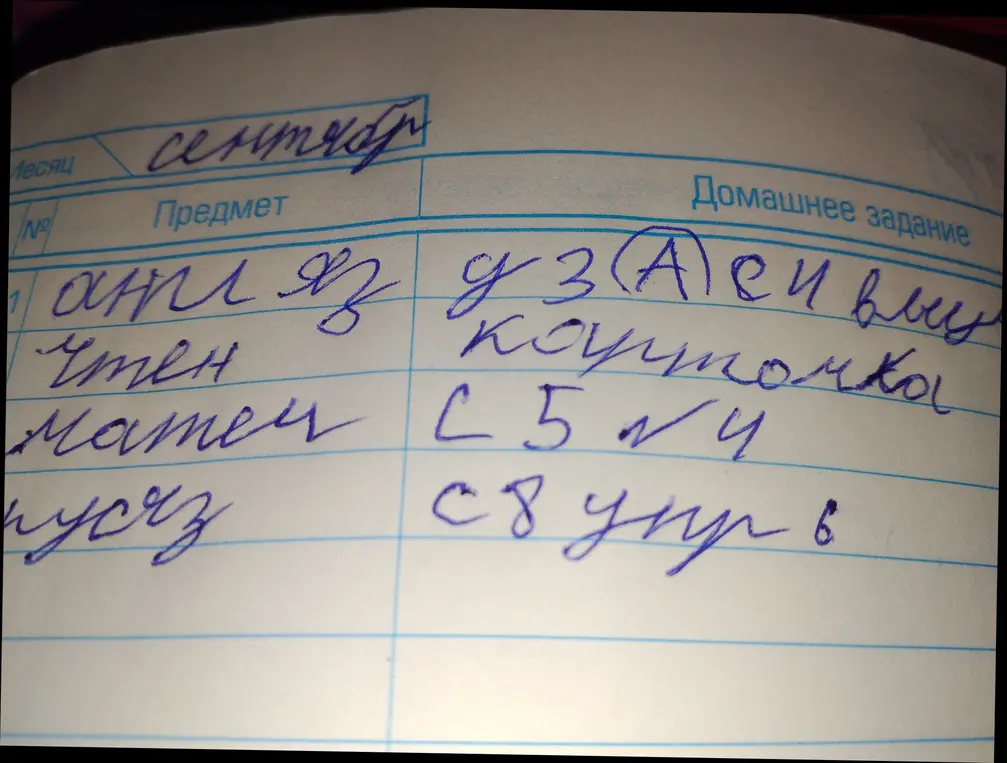 Месяц сентябр
№ Предмет Домашнее задание
1 англ яз у 3 (А) с 4 выу
чтен карточка
матем с 5 № 4
русяз с 8 упр 6